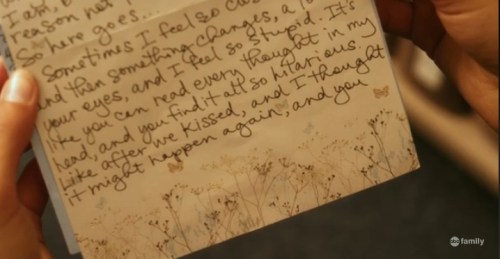 I am, 
reason not
So here goes...
Sometimes I feel so
And then something changes, a
your eyes, and I feel so stupid. It's
like you can read every thought in my
head, and you find it all so hilarious.
Like after we kissed, and I thought
it might happen again, and you
abc family